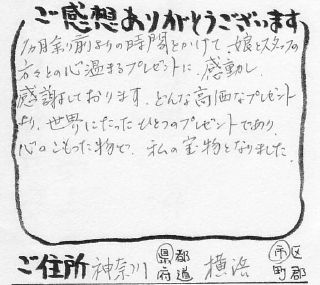 ご感想ありがとうございます
1ヵ月余り前よりの時間をかけて 娘とスタッフの
方々との心温まるプレゼントに、感動し、
感謝しております。どんな高価なプレゼント
より、世界にたったひとつのプレゼントであり、
心のこもった物で、私の宝物となりました。
ご住所 神奈川 県都府道 横浜 市区町郡